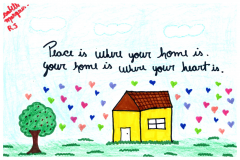 R5
Peace is where your home is.
your home is where your heart is.